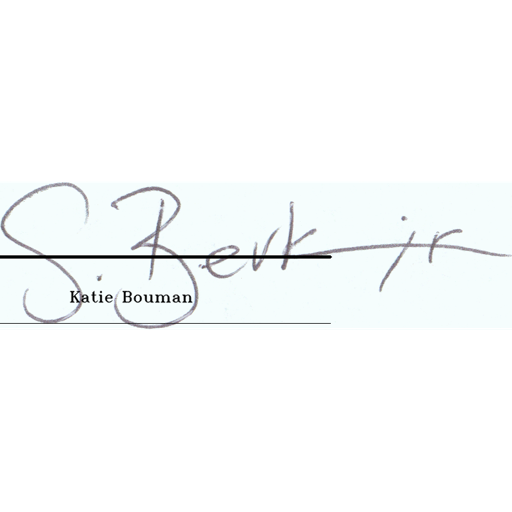 S. Berk jr
Katie Bouman